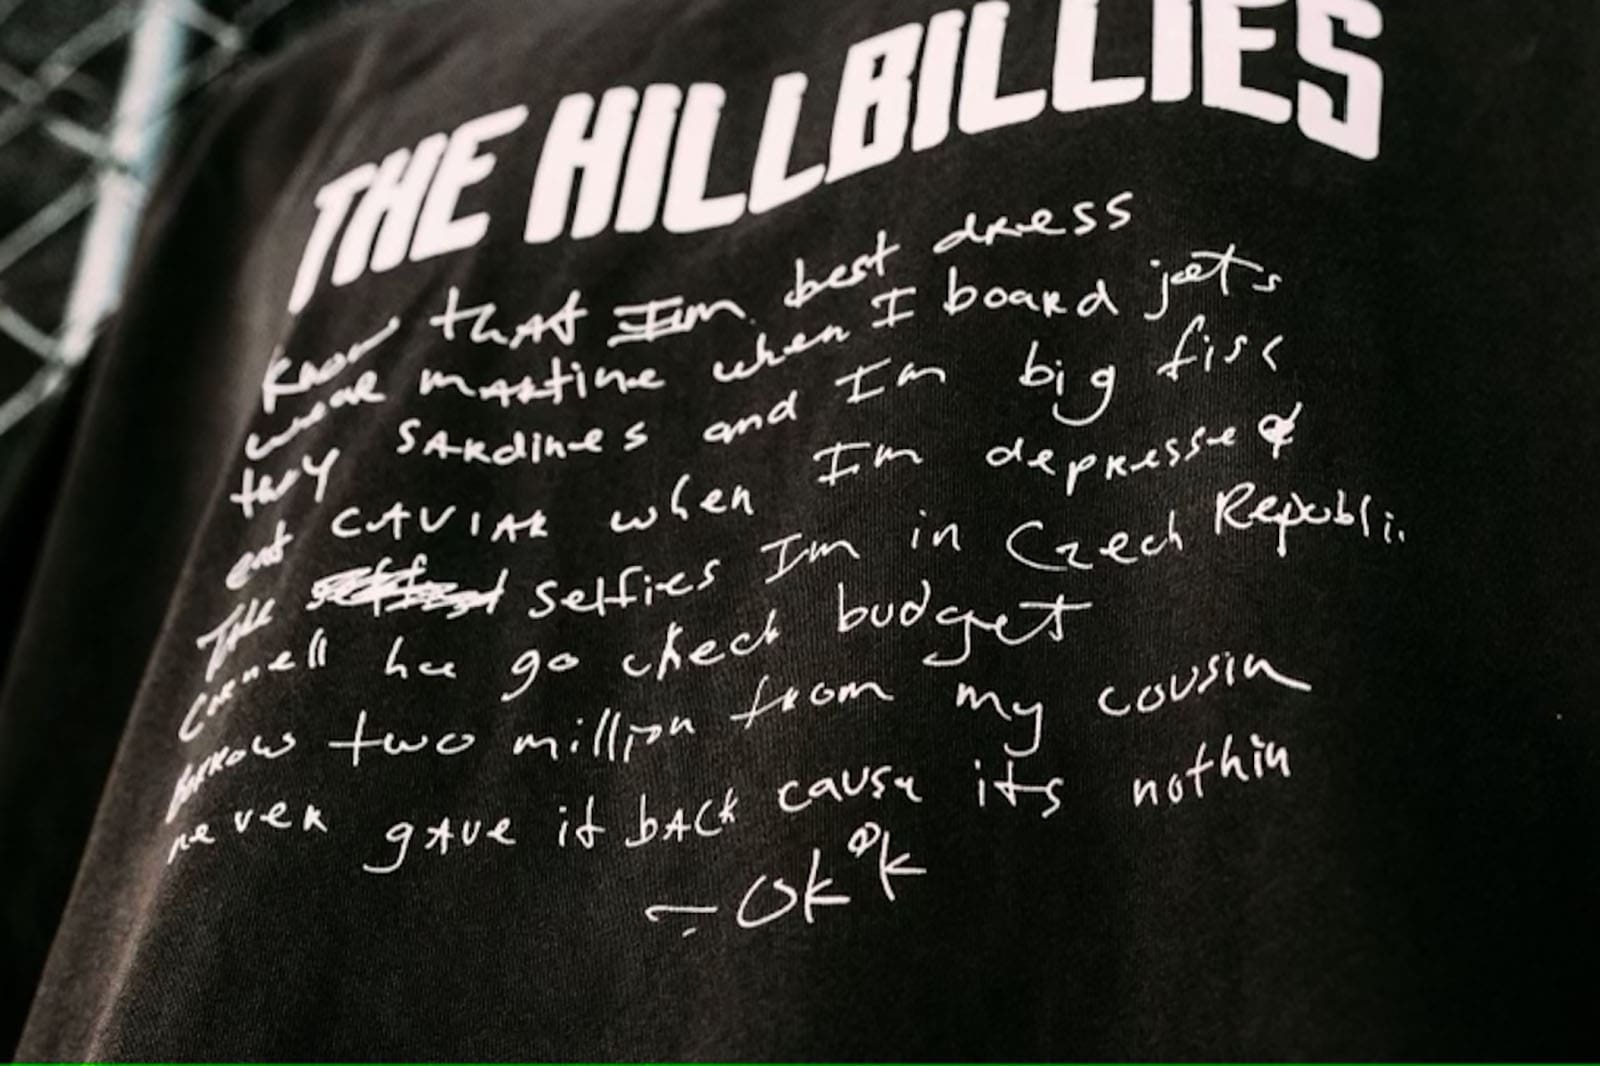 THE HILLBILLIES
know that Im best dress
wear martine when I board jets
they sardines and Im big fish
eat caviar when Im depressed
Take selfies Im in Czech Republi
Cornell he go check budget
borrow two million from my cousin
never gave it back cause its nothin
- Ok Ok